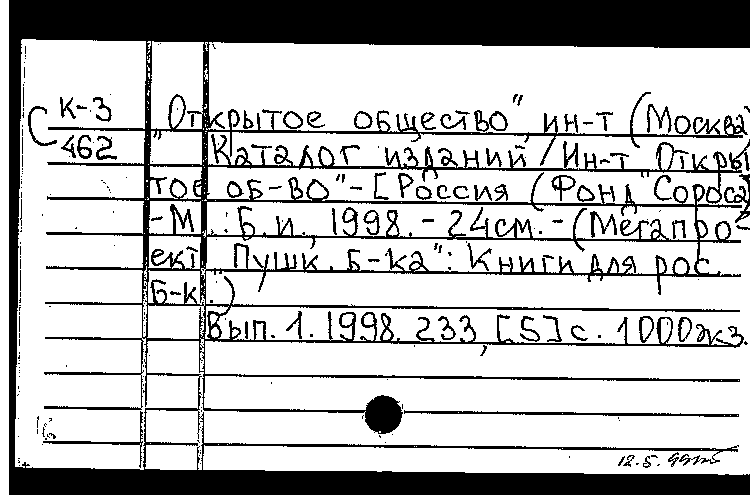 К-3 "Открытое общество", ин-т (Москва)
С 462 " Каталог изданий / Ин-т "Откры
тое об-во" - [Россия (Фонд Сороса)
-М.: Б.и., 1998. - 24см. - (Мегапро-
ект "Пушк. б-ка": Книги для рос.
б-к.)
Вып. 1. 1998. 233, [5] с. 1000экз.
16
12.5.99